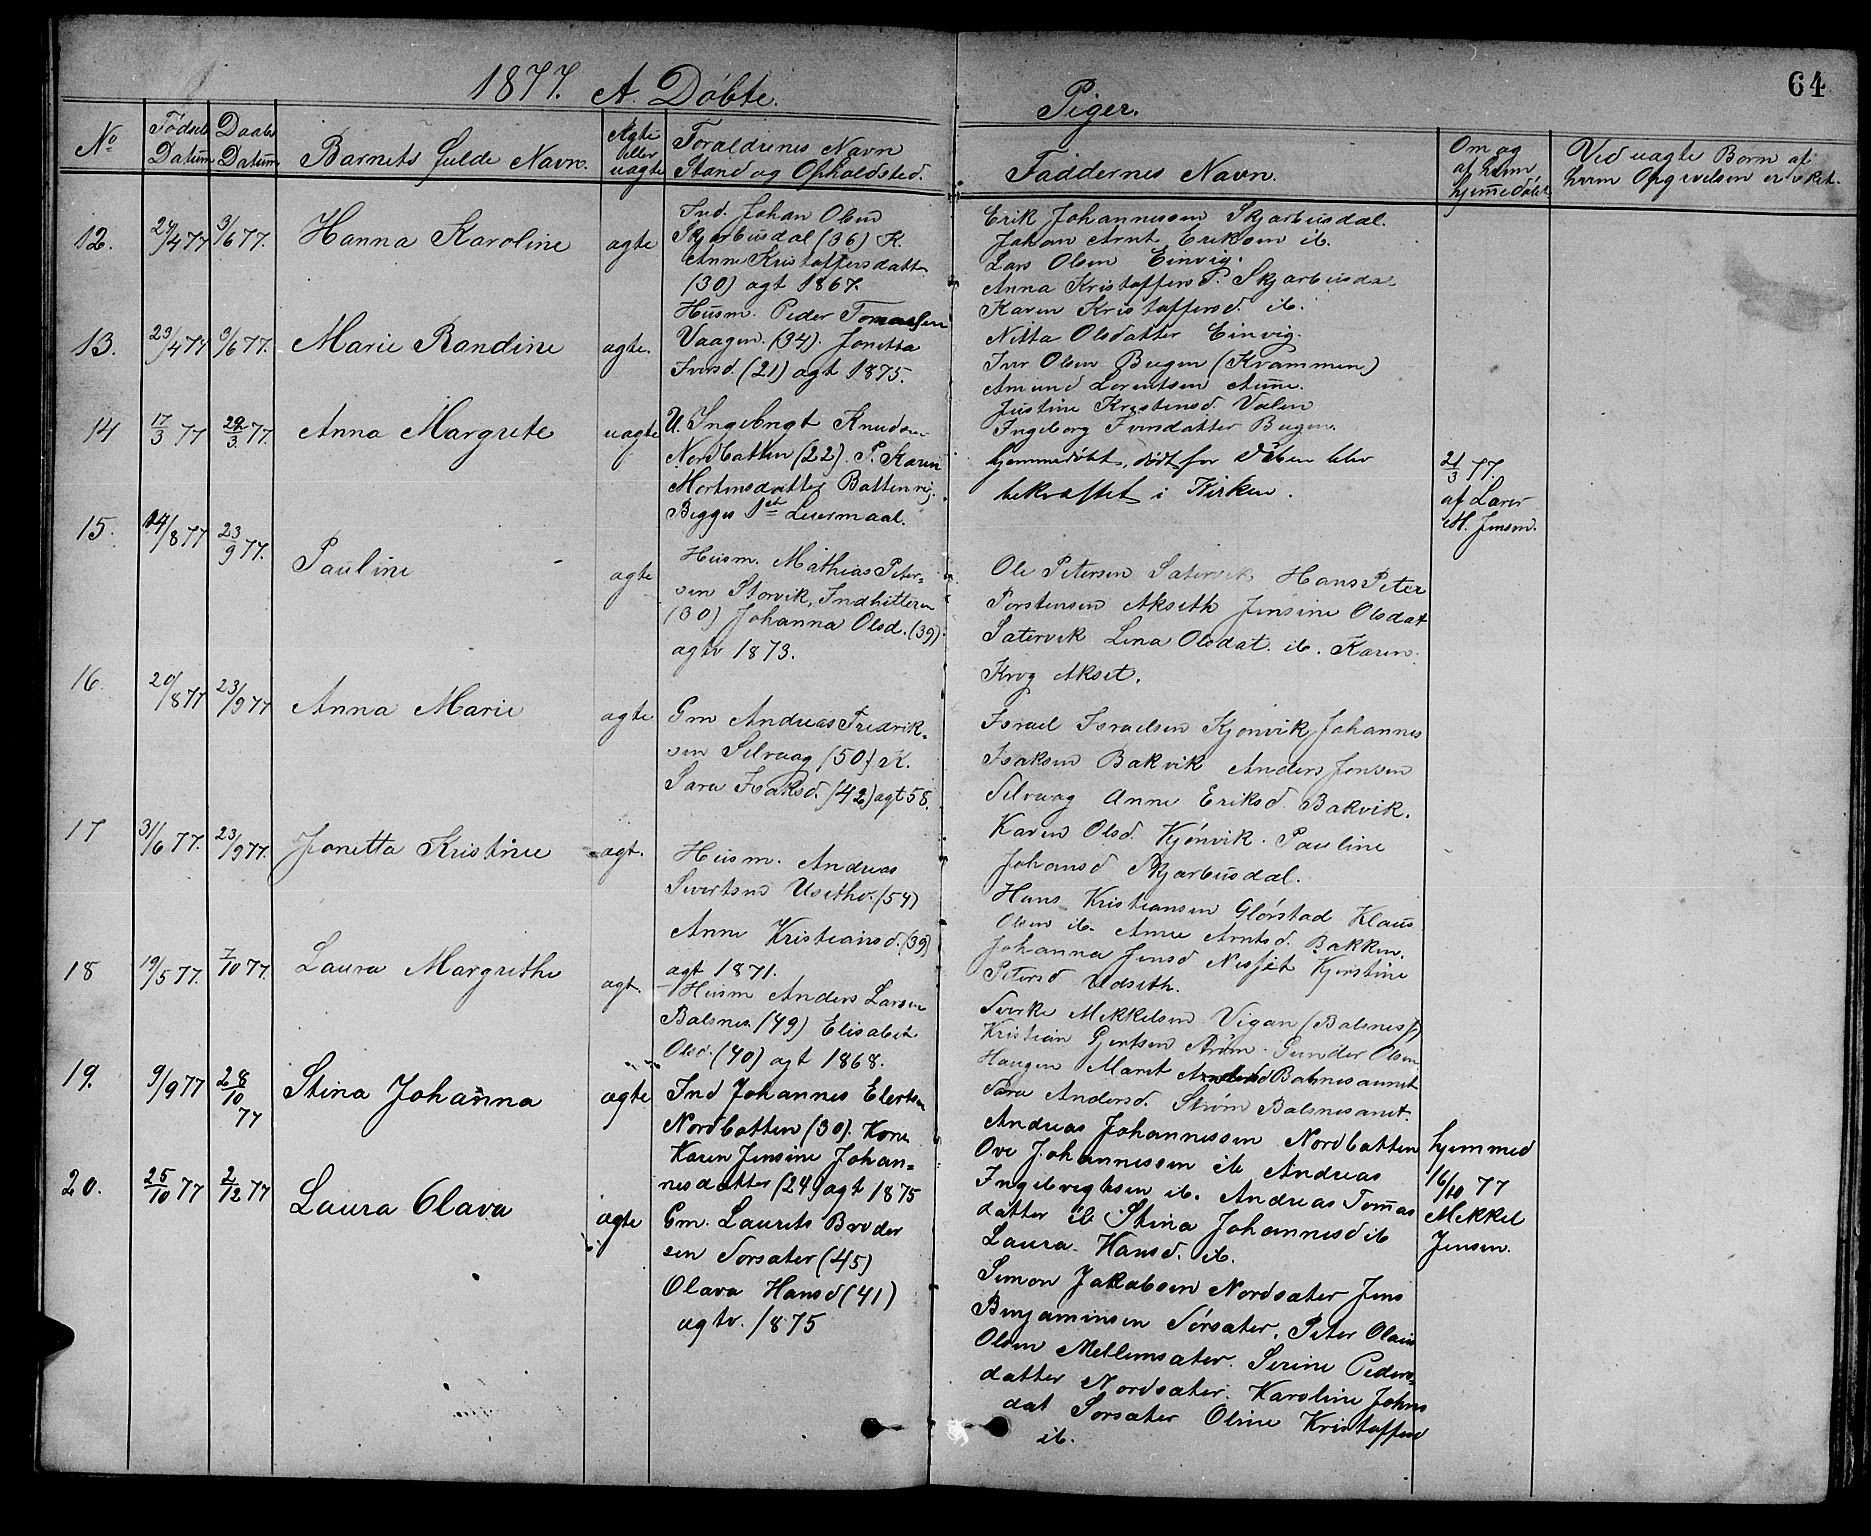 64
1877. A. Döbte.
Piger.
No
Födsels Datum
Daabs Datum
Barnets fulde Navn.
Ægte eller uagte
Foraldrenes Navn
Stand og Opholdsted.
Faddernes Navn.
Om og af hvem hjemmedöbt
Ved uagte Born af
hvem Opgivelsen er
12. 24/4 77 3/6 77. Hanna Karoline agte
Ind. Johan Olsen
Skjarbusdal (36) K.
Anne Kristoffersdatter
(30) agt 1867.
Erik Johannessen Skjarbusdal.
Johan Arnt Eriksen ib.
Lars Olsen Einvig.
Anna Kristoffersd. Skjarbusdal
Karen Kristoffersd. ib.
Nitta Olsdatter Einvig.
13. 23/4 77 3/6 77. Marie Randine agte.
Husm. Peder Tomassen
Vaagen. (34). Jonetta
Iversd. (21) agt 1875.
Iver Olsen Bugen (Kvammen)
Amund Lorentsen Aune.
Justine Krestensd. Valen
Ingeborg Iversdatter Bugen.
14 17/3 77 29/3 77. Anna Margrete uagte
U. Ingebrigt Knudsen
Nordbotten (22). P. Karen
Mortensdatter Battenvig.
Begges 1st Leiermaal.
hjemmedöbt, dödt for Daaben blev
bekraftet i Kirken.
21/3 77.
af Larer
M. Jensen.
15. 14/8 77 23/9 77. Pauline agte
Husm. Mathias Peter-
sen Storvik, Indhitteren
(30) Johanna Olsd. (39).
agtv 1873.
Ole Petersen Satervik Hans Peter
Torstensen Akseth Jensine Olsdat
Satervik Lina Olsdat. ib. Karen
Krog Akset.
16. 20/8 77 23/9 77 Anna Marie agte
Gm Andreas Fredrik-
sen Selvaag (50) K.
Sara Isaksd. (42) agt 58.
Israel Israelsen Kjonvik Johannes
Isaksen Bakvik Anders Jensen
Selvaag Anne Eriksd Bakvik.
Karen Olsd. Kjönvik. Pauline
Johansd Skjarbusdal.
17 31/6 77. 23/9 77. Jonetta Kristine agt.
Husm. Andreas
Sivertsen Usethv. (54)
Anne Kristiansd. (39)
agt 1871.
Hans Kristiansen Glörstad Klaus
Olsen ib. Anne Arntsd. Bakken.
Johanna Jensd Nesset Kjerstine
Petersd Udseth.
18 19/5 77. 7/10 77. Laura Margrethe agt.
Husm Anders Larsen
Balsnes. (49) Elisabet
Olsd. (40) agt 1868.
Sverke Mekkelsen Vigan (Balsnes)
Kristian Gjertsen Ström. Gunder Olsen
Haugen Marit Andersd Balsnesaunet
Sara Andersd. Ström Balsnesaunet.
19. 9/9 77 28/10 77 Stina Johanna agte
Ind Johannes Elertsen
Nordbotten (30). Kone
Karen Jensine Johan-
nesdatter (24) agt 1875
Andreas Johannessen Nordbotten
Ove Johannessen ib Andreas
Ingebrigtsen ib. Andreas Tomas
datter ib Stina Johannesd ib
Laura Hansd. ib.
hjemmed
16/10 77
Mekkel
Jensen.
20. 25/10 77 2/12 77 Laura Olava agte
Gm. Laurits Broder
sen Sorsater (45)
Olava Hansd (41)
agtv. 1875
Simon Jakobsen Nordsater Jens
Benjaminsen Sörsater. Peter Olaus
Olsen Mellemsater. Serine Peders-
datter Nordsater. Karoline Johns
dat Sorsater Oline Kristoffersd
ib.